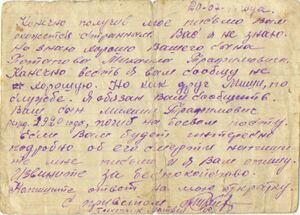 Конечно получив мое письмо Вам
покажется странным. Вас я не знаю.
Но знаю хорошо Вашего сына
Потапова Михаила Трофимовича.
Конечно весть я вам сообщу не
хорошую. Но как друг Миши, по
службе. Я обязан Вам сообщить.
Ваш сын Михаил Трофимович
рожд. 1920 года, погиб на боевом посту.
Если Вам будет интересно
подробно об его смерти напиши-
те мне письмо и я Вам опишу.
Извините за беспокойство.
Напишите ответ на мою открытку.
С приветом